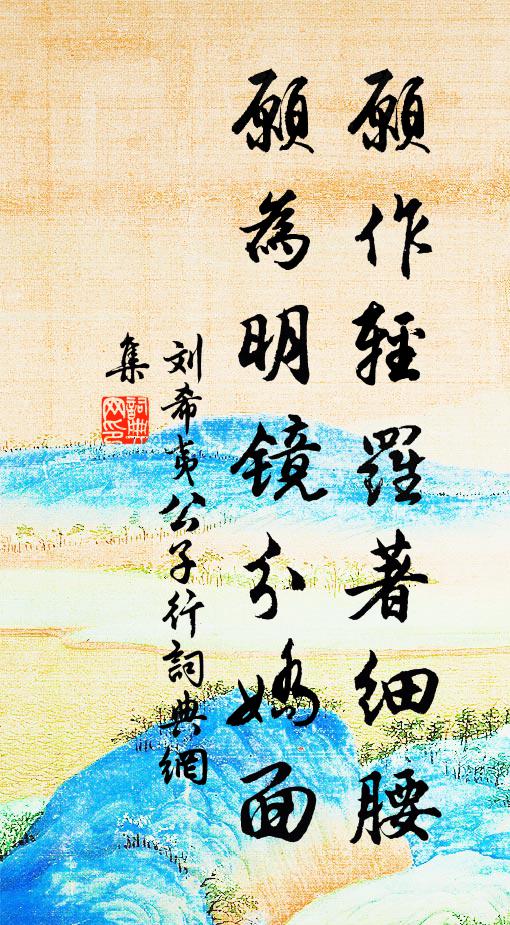 願作輕羅著細腰
願為明鏡分嬌面
刘希夷公子行詞典網
集
詞典网印